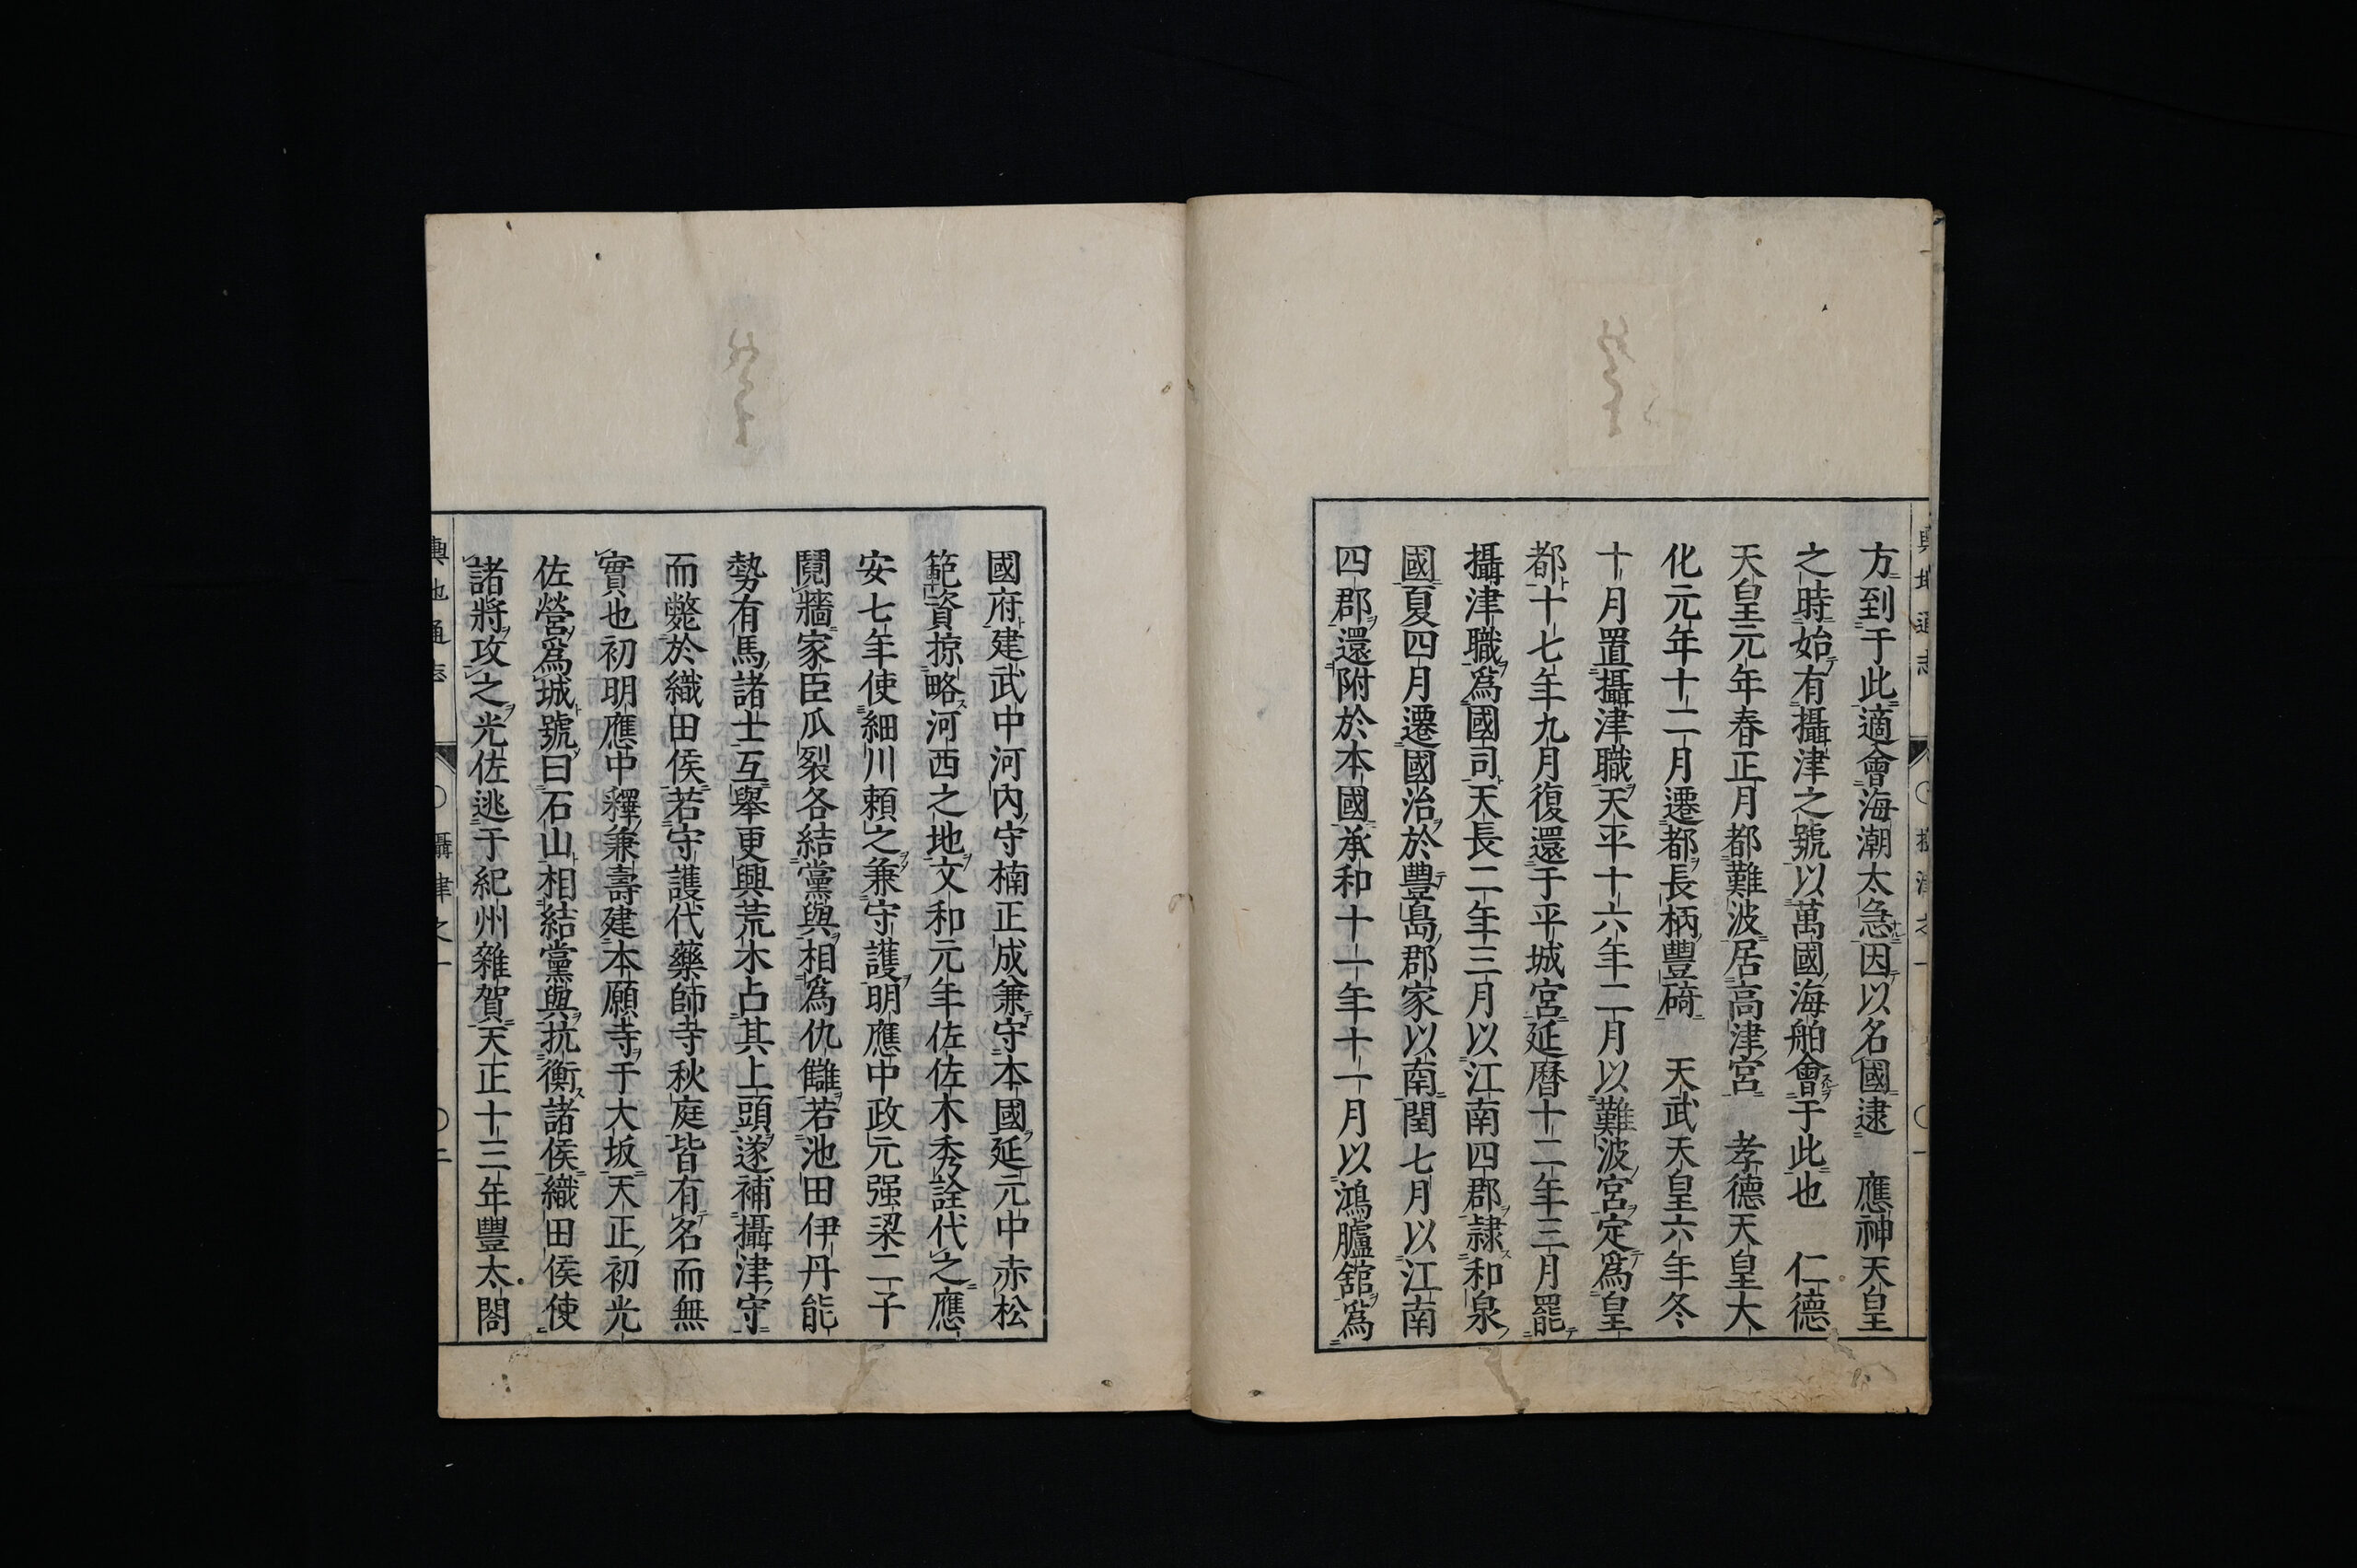 方到于此適會海潮太急因以名國逮　應神天皇
之時始有攝津之號以萬國海舶會于此也　仁德
天皇元年春正月都難波居高津宮　孝德天皇大
化元年十二月遷都長柄豐碕　天武天皇六年冬
十月置攝津職天平十六年二月以難波宮定爲皇
都十七年九月復還于平城宮延曆十二年三月罷
攝津職爲國司天長二年三月以江南四郡隷和泉
國夏四月遷國治於豐島郡家以南閏七月以江南
四郡還附於本國承和十一年十一月以鴻臚舘爲
國府建武中河內守楠正成兼守本國延元中赤松
範資掠略河西之地文和元年佐佐木秀詮代之應
安七年使細川賴之兼守護明應中政元强梁二子
鬩牆家臣瓜裂各結黨與相爲仇讎若池田伊丹能
勢有馬諸士互舉更興荒木占其上頭遂補攝津守
而斃於織田侯若守護代藥師寺秋庭皆有名而無
實也初明應中釋兼壽建本願寺于大坂天正初光
佐營爲城號曰石山相結黨與抗衡諸侯織田侯使
諸將攻之光佐逃于紀州雜賀天正十三年豐太閤
輿地通志
攝津之一
〇二